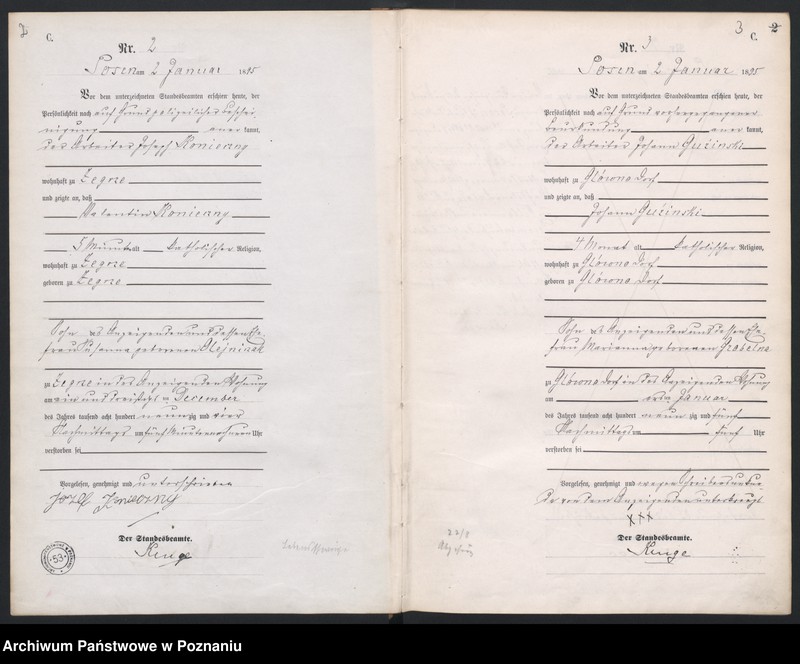 C.
Nr. 2
Posen am 2 Januar 1895
Vor dem unterzeichneten Standesbeamten erschien heute, der
Persönlichkeit nach auf Grund polizeilicher Beschei-
nigung anerkannt,
der Arbeiter Joseph Konieczny
wohnhaft zu Zegrze
und zeigte an, daß
Valentin Konieczny
5 Monat alt katholischer Religion,
wohnhaft zu Zegrze
geboren zu Zegrze
Sohn des Anzeigenden und dessen Ehe-
frau Susanna geborenen Olejniczak
zu Zegrze in des Anzeigenden Wohnung
am ein und dreißigsten December
des Jahres tausend acht hundert neunzig und vier
Nachmittags um fünf Uhr
verstorben sei
Vorgelesen, genehmigt und unterschrieben
Der Standesbeamte.
53
3
C.
Nr. 3
Posen am 2 Januar 1895
Vor dem unterzeichneten Standesbeamten erschien heute, der
Persönlichkeit nach auf Grund vorhergegangener
Beurkundung anerkannt,
der Arbeiter Johann Guzinski
wohnhaft zu Glówno Dorf
und zeigte an, daß
Johann Guzinski
4 Monat alt katholischer Religion,
wohnhaft zu Glówno Dorf
geboren zu Glówno Dorf
Sohn des Anzeigenden und dessen Ehe-
frau Marianna geborenen
zu Glówno Dorf in des Anzeigenden Wohnung
am ersten Januar
des Jahres tausend acht hundert neunzig und fünf
Nachmittags um fünf Uhr
verstorben sei
Vorgelesen, genehmigt und wegen Schreibensunkun-
de von dem Anzeigenden unterkreuzt
XXX
Der Standesbeamte.
Archiwum Państwowe w Poznaniu